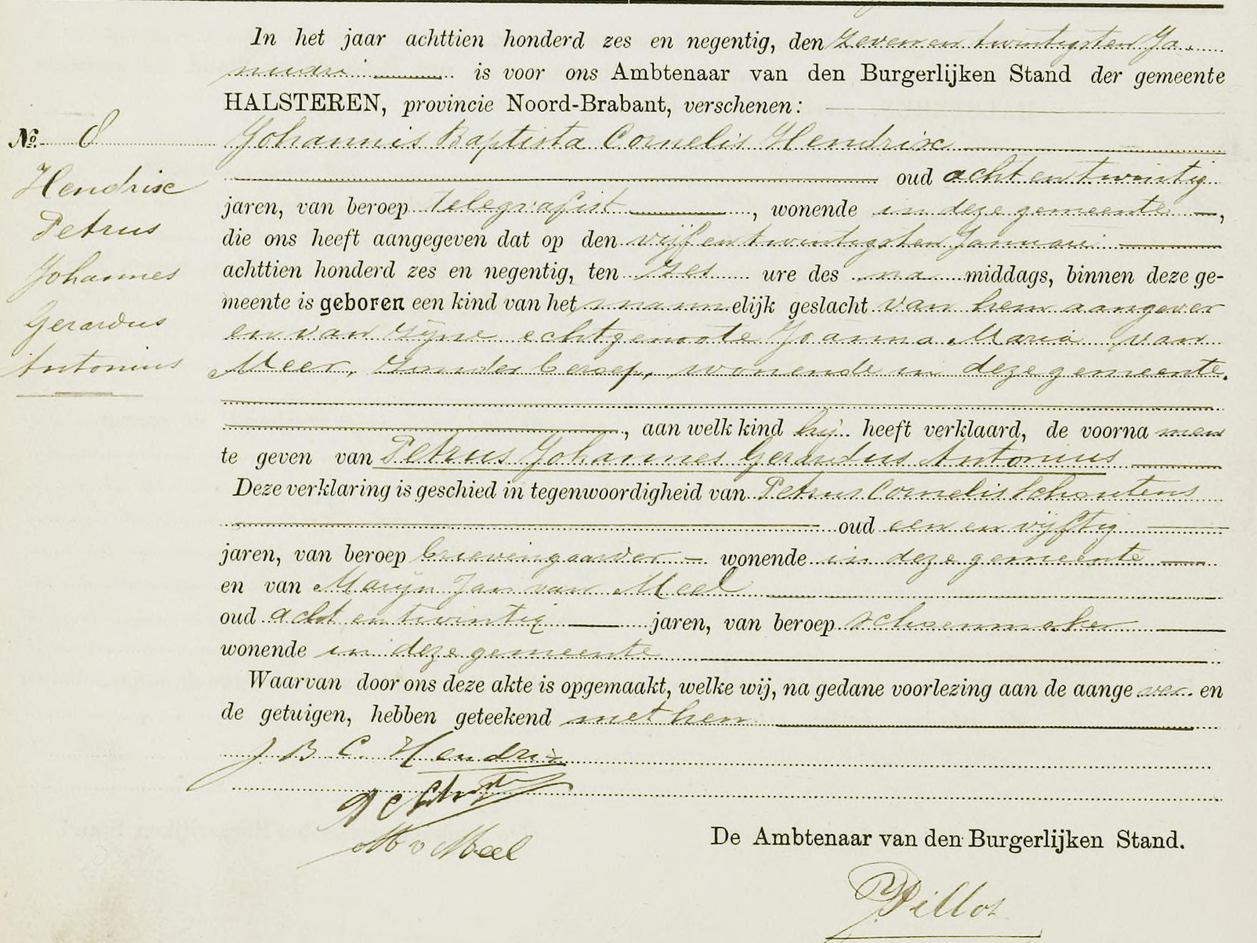 In het jaar achttien honderd zes en negentig, den zevenentwintigsten Ja-
nuari is voor ons Ambtenaar van den Burgerlijken Stand der gemeente
HALSTEREN, provincie Noord-Brabant, verschenen:
No. 8
Johannis Baptista Cornelis Hendrix
Hendrix
oud acht en twintig
jaren, van beroep telegrafist, wonende in deze gemeente,
Petrus
die ons heeft aangegeven dat op den vijfentwintigsten Januari
Johannes
achttien honderd zes en negentig, ten zes ure des na middags, binnen deze ge-
meente is geboren een kind van het mannelijk geslacht van hem aangever
Gerardus
en van zijne echtgenoote Joanna Maria van
Antonius
Meer, zonder beroep, wonende in deze gemeente.
, aan welk kind hij heeft verklaard, de voorna men
te geven van Petrus Johannes Gerardus Antonius
Deze verklaring is geschied in tegenwoordigheid van Petrus Cornelis Schoutens
oud een en vijftig
jaren, van beroep brievengaarder wonende in deze gemeente
en van Marijn Jan van Meel
oud acht en twintig jaren, van beroep schoenmaker
wonende in deze gemeente
Waarvan door ons deze akte is opgemaakt, welke wij, na gedane voorlezing aan de aange ver en
de getuigen, hebben geteekend met hen.
J B C. Hendrix
M v Meel
De Ambtenaar van den Burgerlijken Stand.